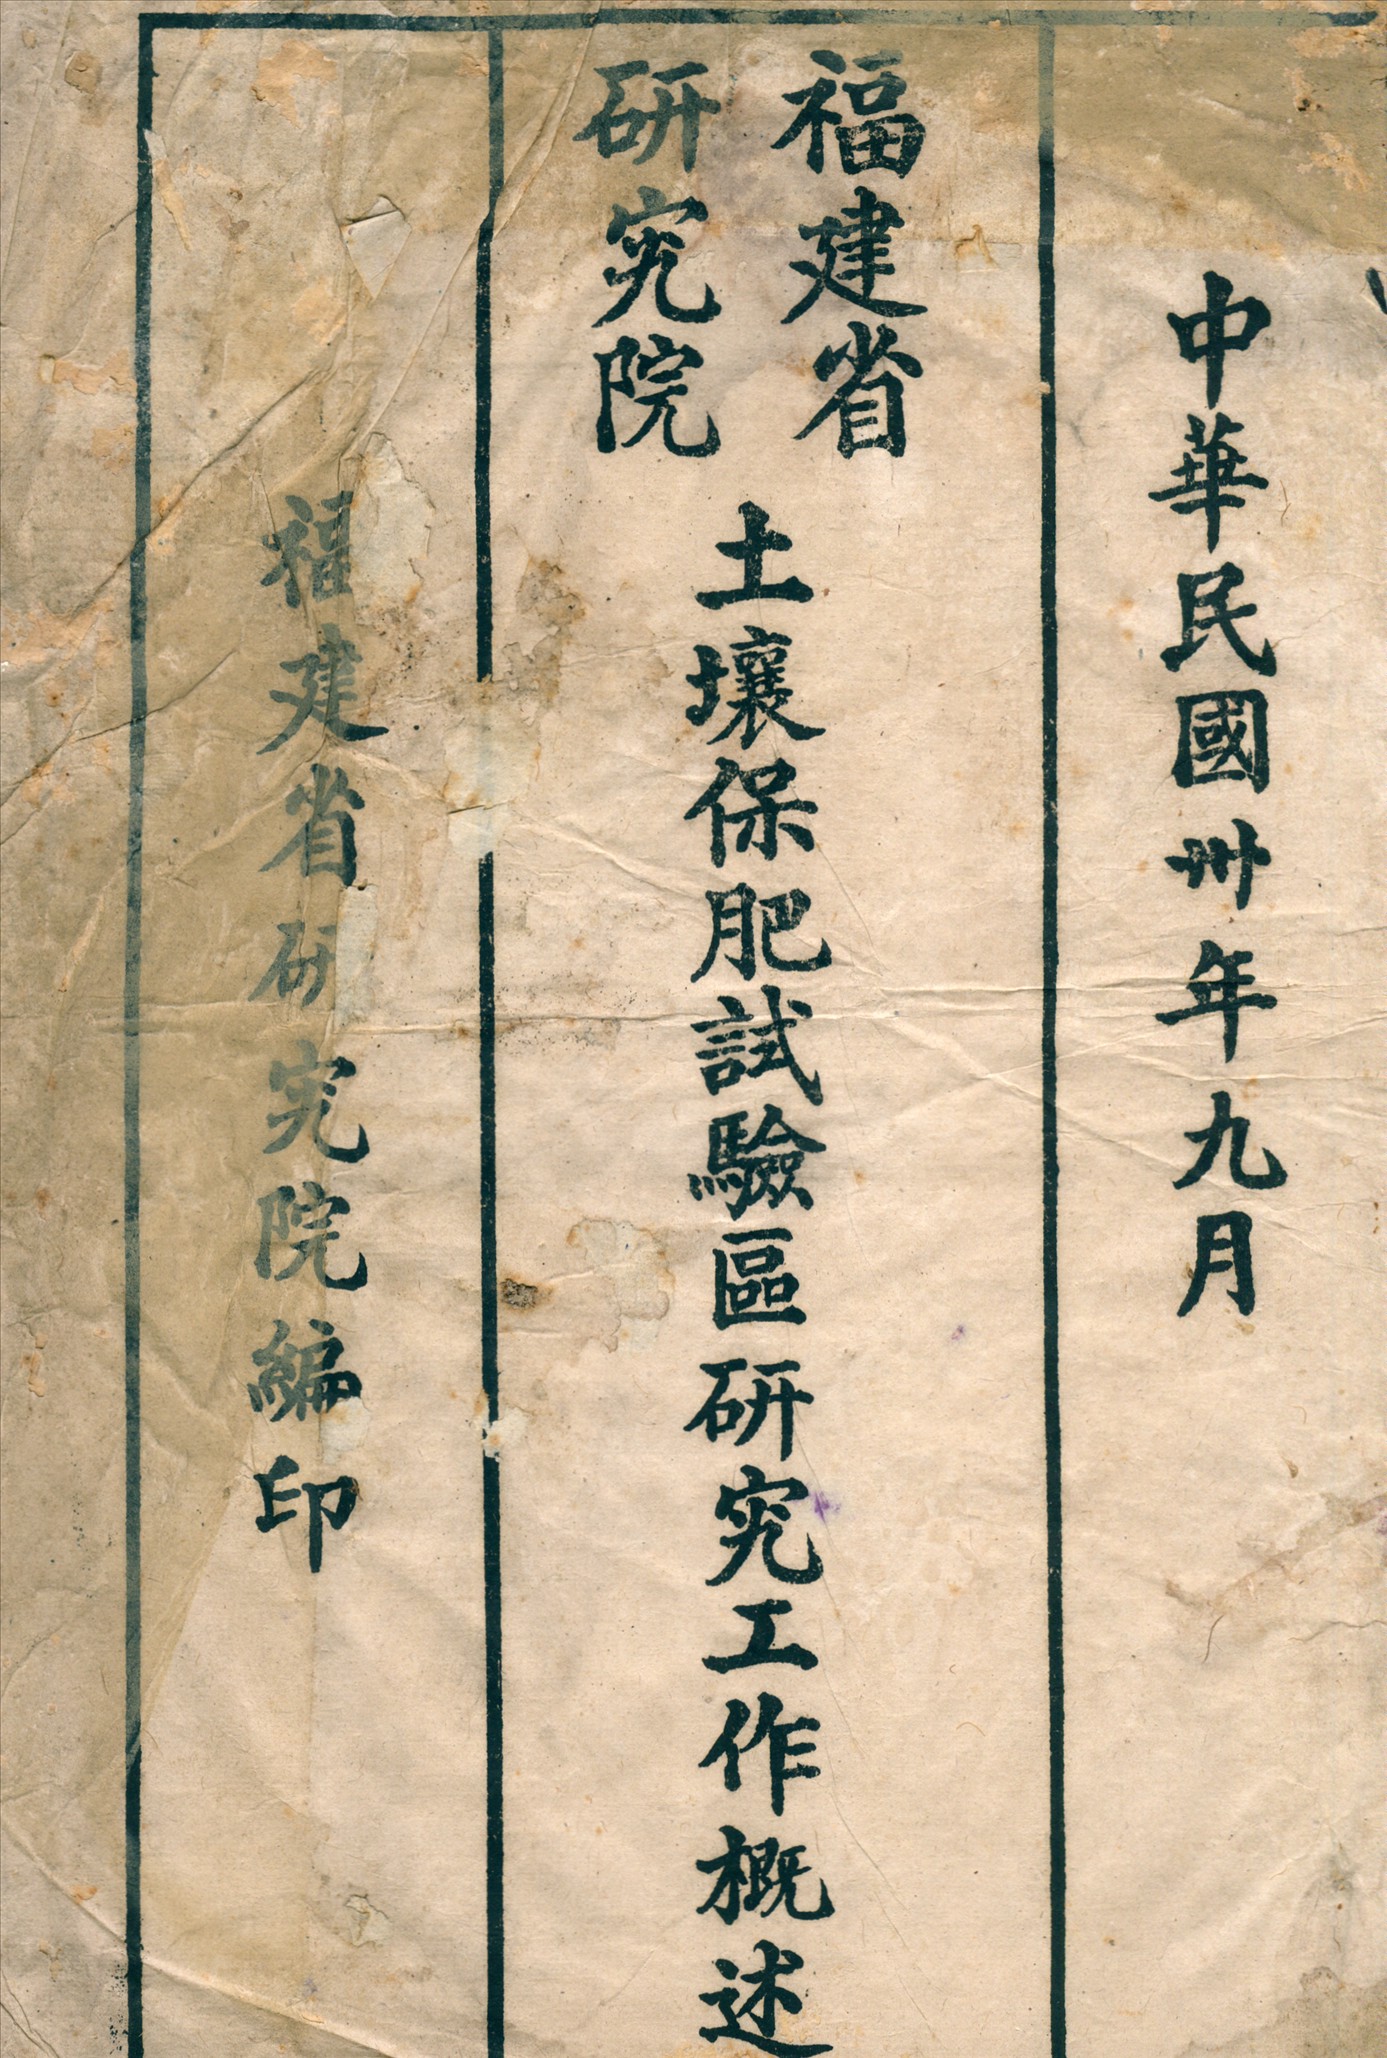 中華民國卅年九月
福建省
研究院
土壤保肥試驗區研究工作概述
福建省研究院編印